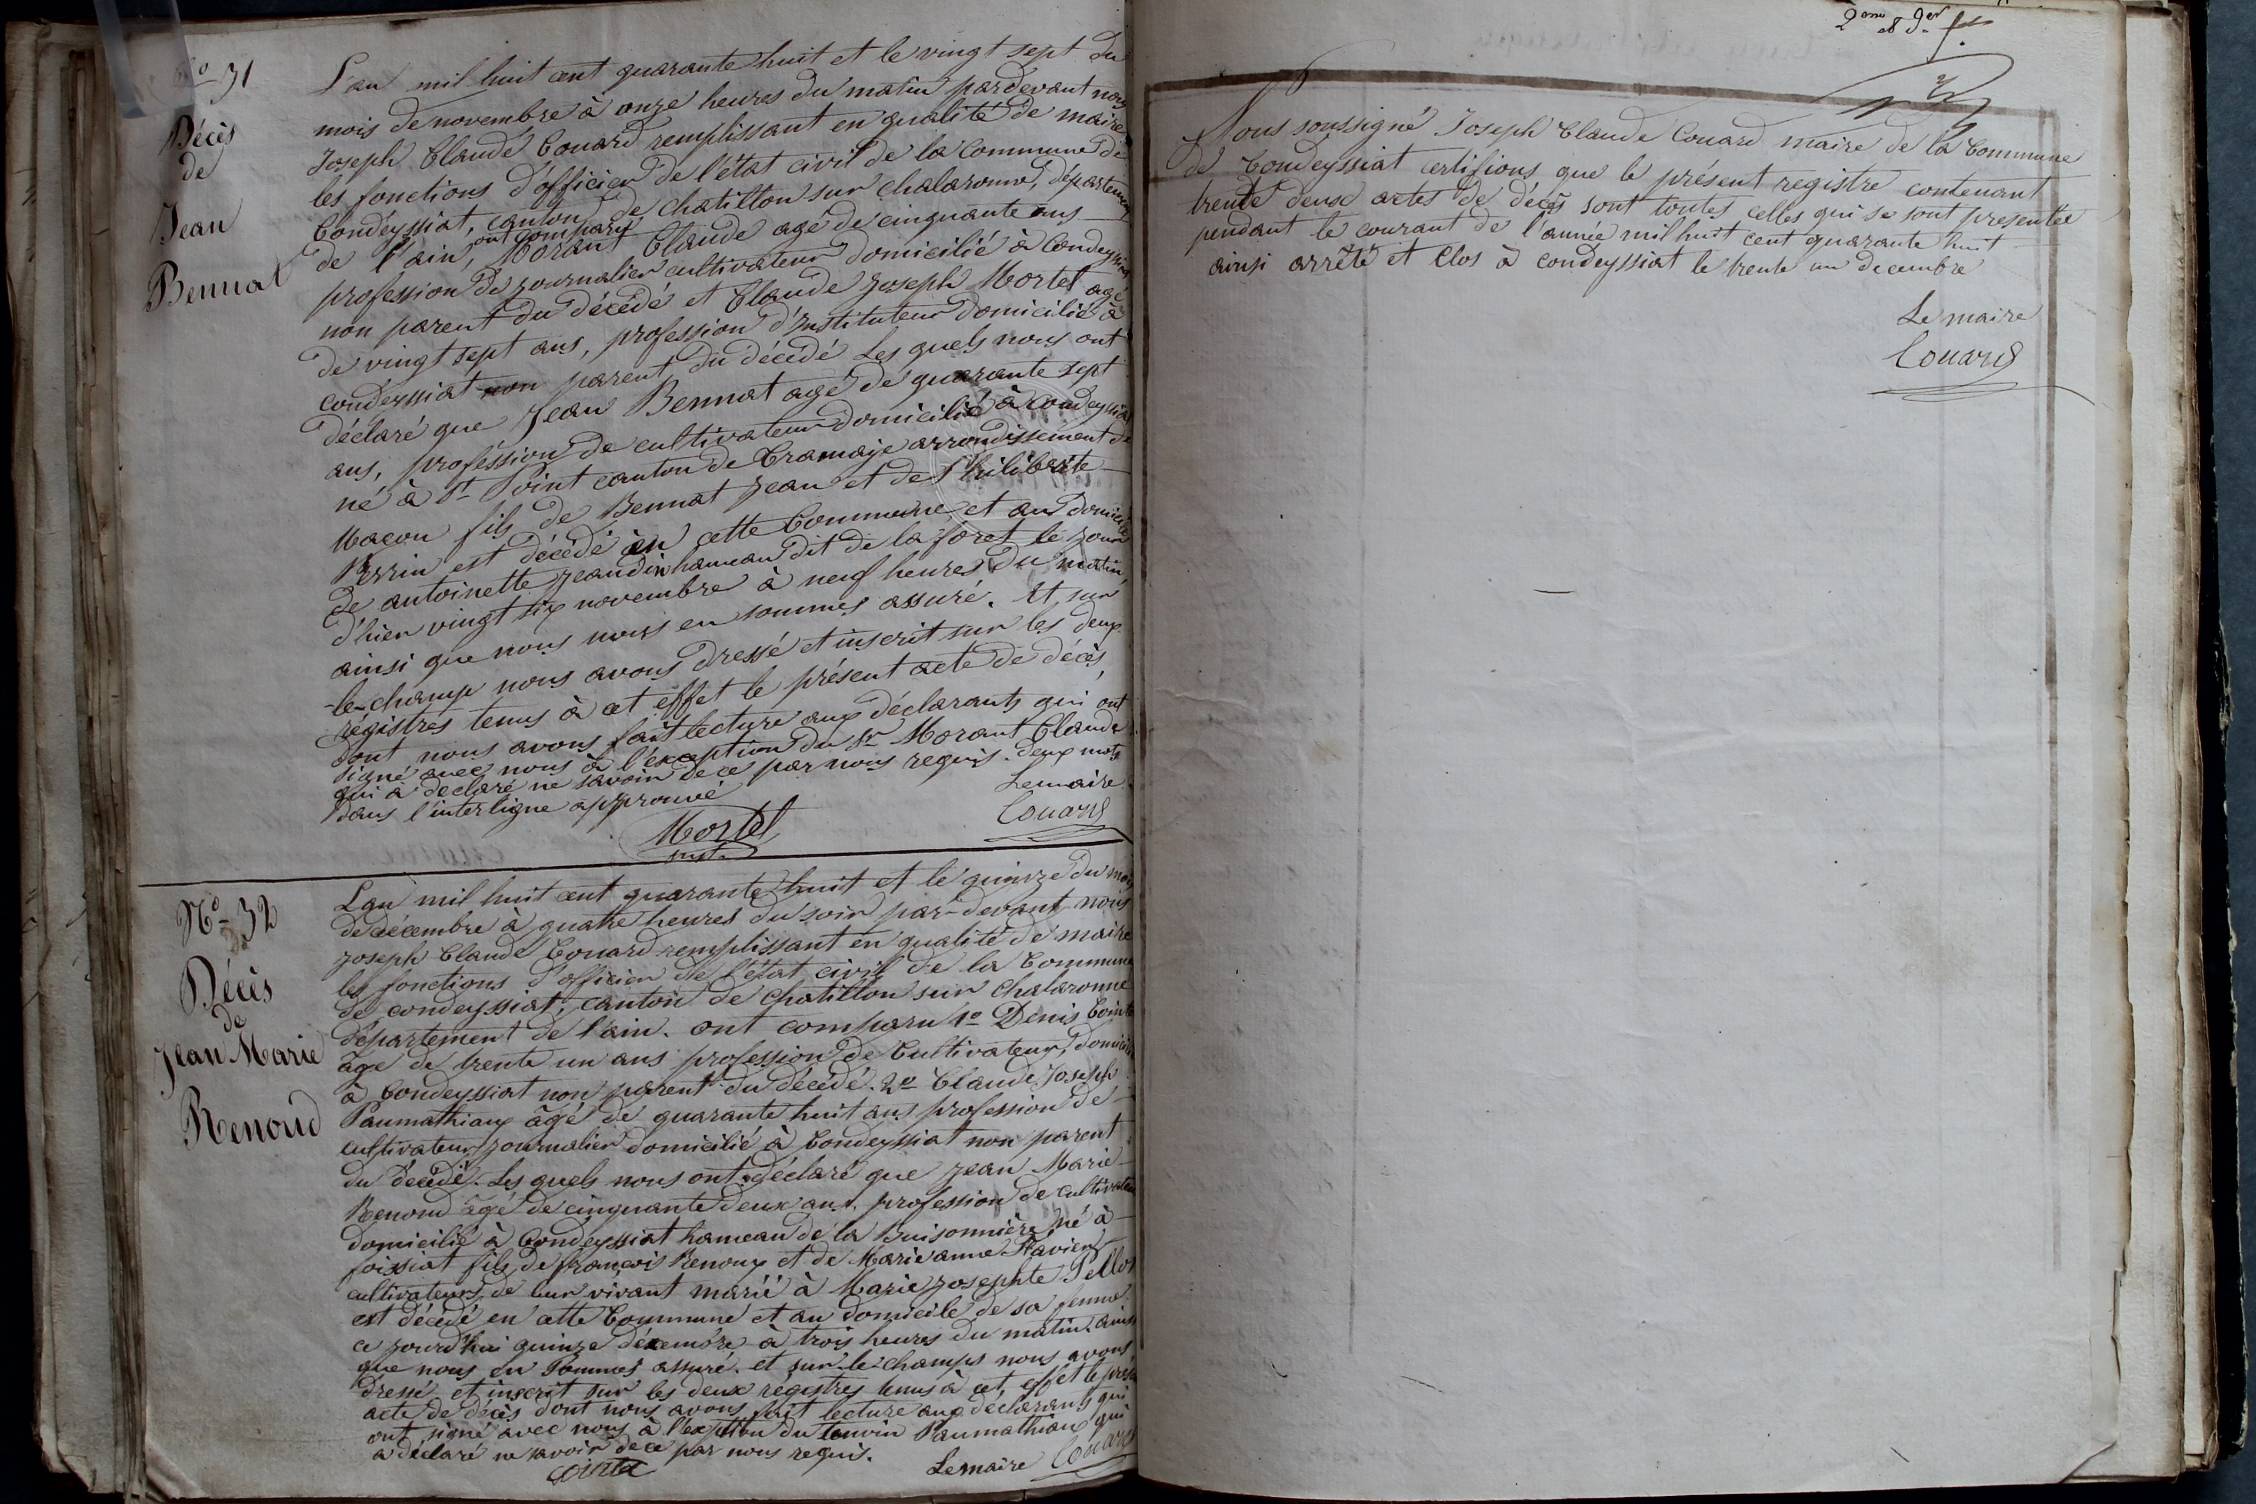 No 31
Décès
de
Jean
Bennat
L'an mil huit cent quarante huit et le vingt sept du
mois de novembre à onze heures du matin pardevant nous
Joseph Claude Couard remplissant en qualité de maire
les fonctions d'officier de l'état civil de la Commune de
Condeyssiat, canton de chatillon sur chalaronne, département
ont comparu
de l'ain, Morant Claude agé de cinquante ans
profession de journalier cultivateur domicilié à Condeyssiat
non parent du décédé et Claude Joseph Mortel agé
de vingt sept ans, profession d'Instituteur domicilié à
condeyssiat non parent du décédé Les quels nous ont
déclaré que Jean Bennat agé de quarante sept
ans, proféssion de cultivateur domicilié à condeyssiat
né à St Point canton de Tramaye arrondissement de
Macon fils de Bennat Jean et de Philiberte
Perrin est décédé en cette Commune et au domicile
de antoinette Jeandin hameau dit de la foret le jour
d'hier vingt six novembre à neuf heures du matin,
ainsi que nous nous en sommes assuré. Et sur
-le-champ nous avons dressé et inscrit sur les deux
régistres tenus à cet effet le présent acte de décès,
dont nous avons fait lecture aux déclarants qui ont
signé avec nous à l'exception du Sr Morant Claude
qui a déclaré ne savoir de ce par nous requis. deux mots
dans l'interligne approuvé
Lemaire
Mortel
inst.
Couard
No 32
Décès
de
Jean Marie
Renoud
L'an mil huit cent quarante huit et le quinze du mois
de décembre à quatre heures du soir par-devant nous
Joseph Claude Couard remplissant en qualité de maire
les fonctions d'officier de l'état civil de la Commune
de condeyssiat, canton de chatillon sur chalaronne
département de l'ain. ont comparu 1o Denis Cointe
âgé de trente un ans profession de Cultivateur, domicilié
à Condeyssiat non parent du décédé. 2o Claude Joseph
Paumathiaux âgé de quarante huit ans profession de
cultivateur journalier domicilié à Condeyssiat non parent
du décédé. Les quels nous ont déclaré que Jean Marie
Renoud âgé de cinquante deux ans. profession de cultivateur
domicilié à Condeyssiat hameau de la Buisonnière né à
foissiat fils de françois Renoux et de Marie anne
cultivateurs de leur vivant marié à Marie Josephte
est décédé en cette Commune et au domicile de sa femme
ce jourd'hui quinze décembre à trois heures du matin. ainsi
que nous en sommes assuré. et sur-le-champs nous avons
dressé et inscrit sur les deux régistres tenus à cet effet le présent
acte de décès dont nous avons fait lecture aux déclarants qui
ont signé avec nous à l'exption du temoin Paumathiaux qui
a déclaré ne savoir de ce par nous requis.
Cointe
Lemaire Couard
2eme et 9er f.
Nous soussigné Joseph Claude Couard maire de la Commune
de Condeyssiat certifions que le présent registre contenant
trente deux actes de décès sont toutes celles qui se sont presentée
pendant le courant de l'année mil huit cent quarante huit
ainsi arrêté et Clos à condeyssiat le trente un decembre
Le maire
Couard